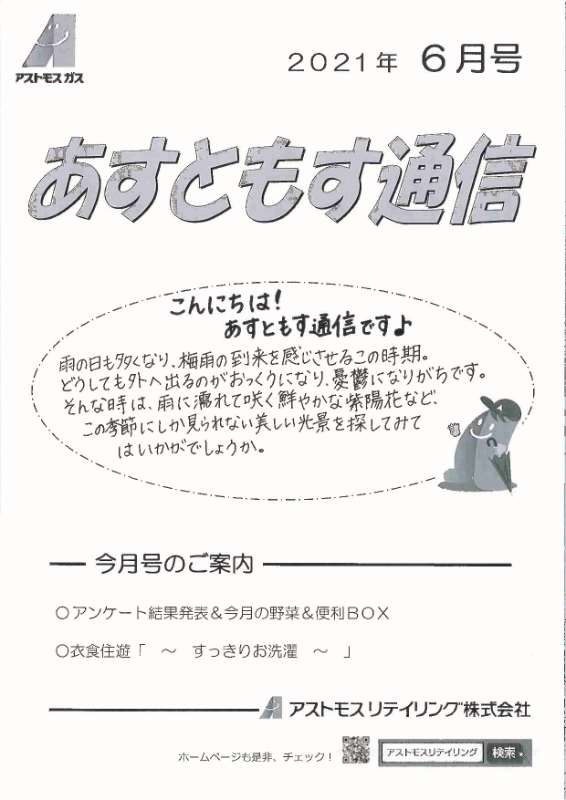 アストモスガス
2021年 6月号
あすともす通信
こんにちは!
あすともす通信です♪
雨の日も多くなり、梅雨の到来を感じさせるこの時期。
どうしても外へ出るのがおっくうになり、憂鬱になりがちです。
そんな時は、雨に濡れて咲く鮮やかな紫陽花など、
この季節にしか見られない美しい光景を探してみて
はいかがでしょうか。
今月号のご案内
○アンケート結果発表&今月の野菜&便利BOX
○衣食住遊「 ~ すっきりお洗濯 ~ 」
アストモスリテイリング株式会社
ホームページも是非、チェック!
アストモスリテイリング 検索